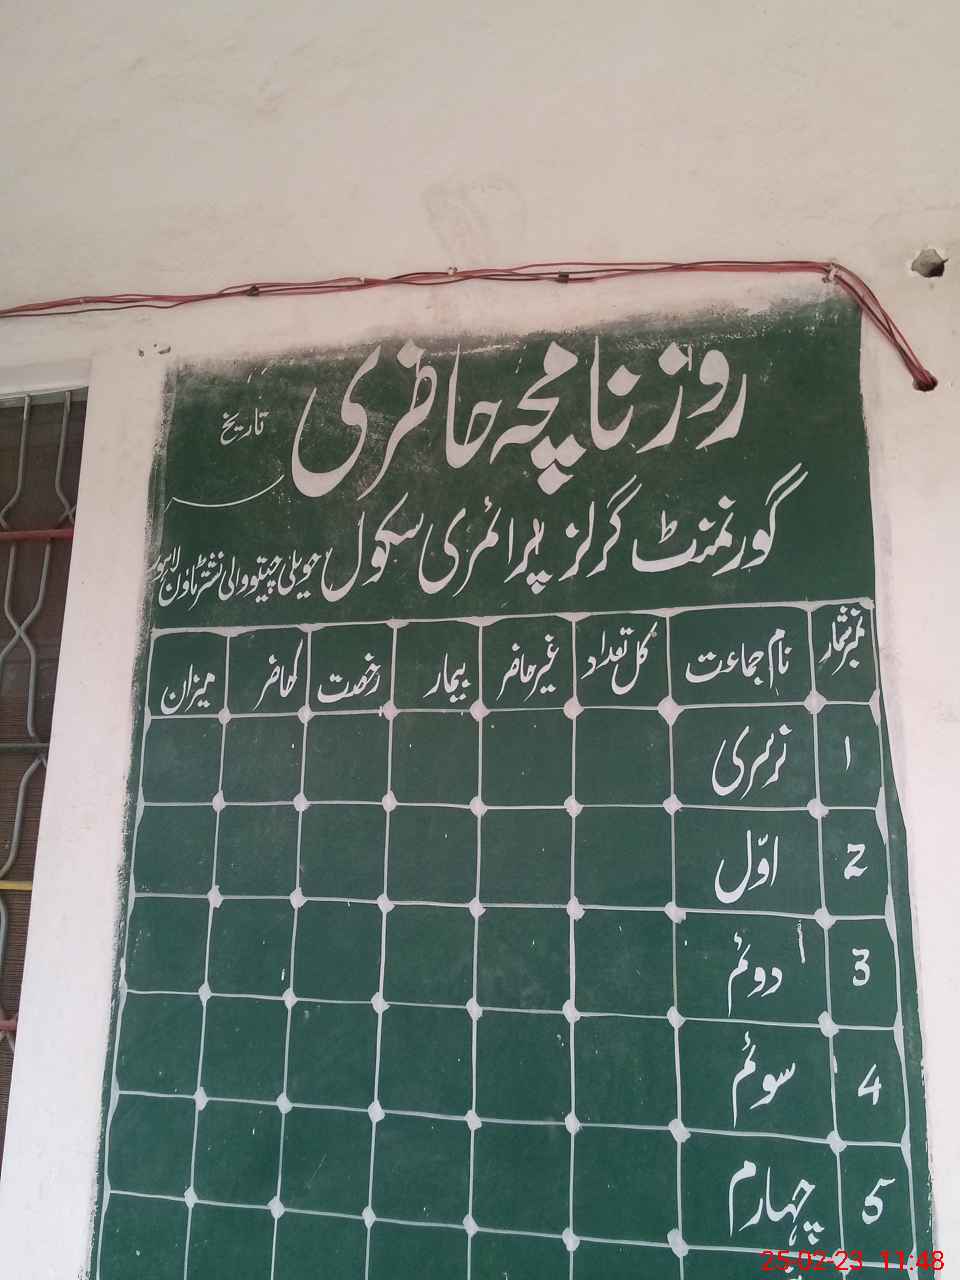 روزنامچہ حاضری
تاریخ
گورنمنٹ گرلز پرائمری سکول حویلی چپتو والی نشتر ٹاؤن لاہور
نمبر شمار نام جماعت کل تعداد غیر حاضر بیمار رخصت کل حاضر میزان
1 نرسری
2 اوّل
3 دوئم
4 سوئم
5 چہارم
25-02-23 11:48